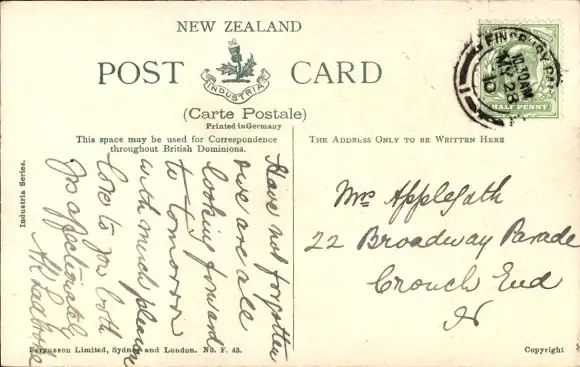 NEW ZEALAND
POST CARD
INDUSTRIA
(Carte Postale)
Printed in Germany
This space may be used for Correspondence
throughout British Dominions.
THE ADDRESS ONLY TO BE WRITTEN HERE
FINSBURY PARK
10.30AM
MY 28
10
HALF PENNY
Have not forgotten
we are all
looking forward
to tomorrow
with much pleasure
love to you both
Yrs affectionately
Mrs Applegath
22 Broadway Parade
Crouch End
N
Industria Series.
Fergusson Limited, Sydney and London. No. F. 43.
Copyright